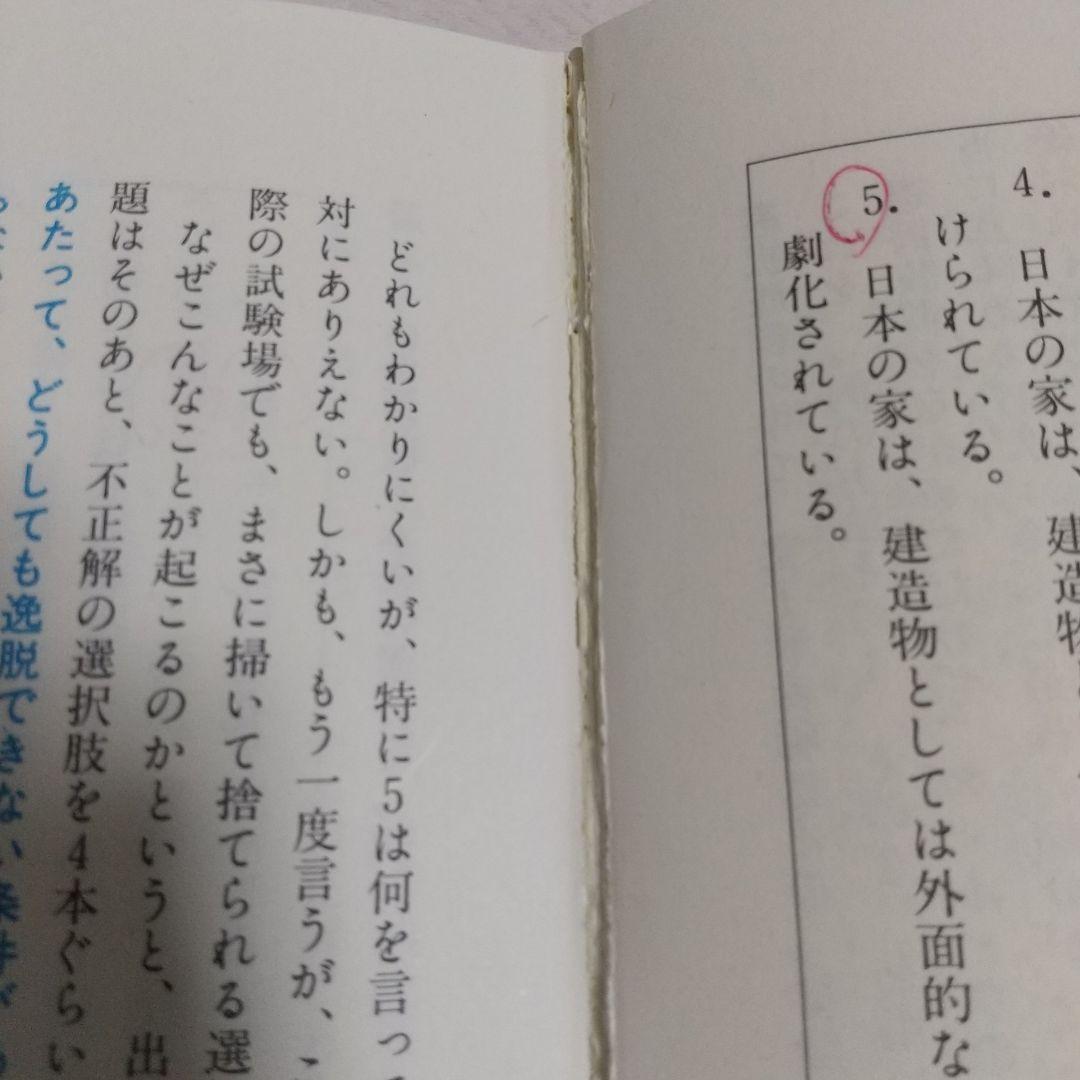 4. 日本の家は、建造物
けられている。
5. 日本の家は、建造物としては外面的な
劇化されている。
どれもわかりにくいが、特に5は何を言っ
対にありえない。しかも、もう一度言うが、こ
際の試験場でも、まさに掃いて捨てられる選
なぜこんなことが起こるのかというと、出
題はそのあと、不正解の選択肢を4本ぐらい
あたって、どうしても逸脱できない条件が